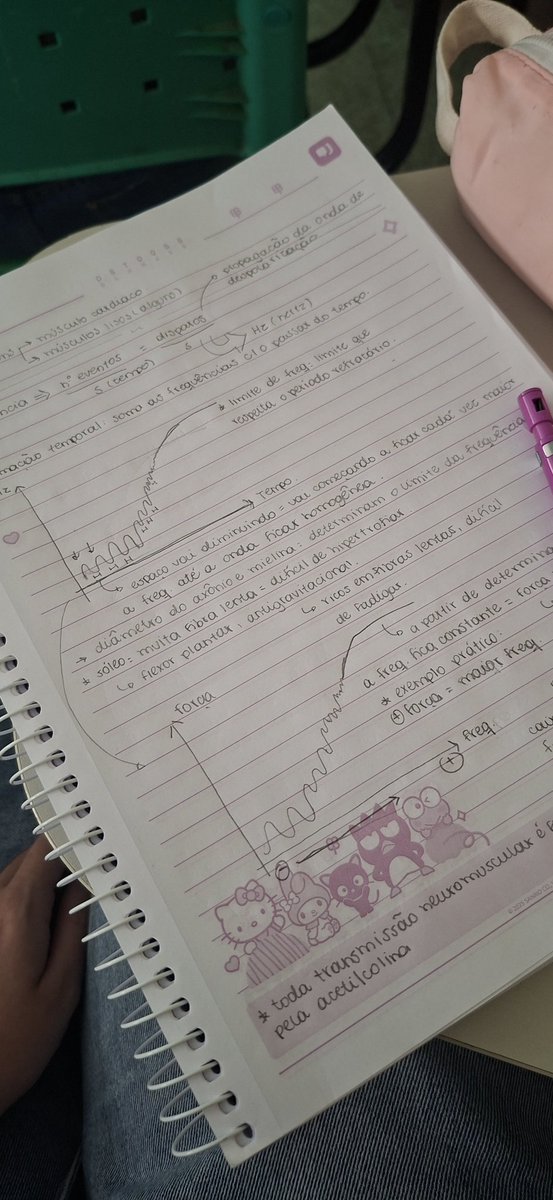 músculo cardíaco
músculos lisos (alguns)
propagação da onda de
despolarização
nº eventos = disparos
s (tempo) s
Hz (hertz)
mação temporal: soma as frequências c/ o passar do tempo.
* limite de freq: limite que
respeita o período refratário.
Tempo
espaço vai diminuindo = vai começando a ficar cada vez maior
a freq. até a onda ficar homogênea.
→ diâmetro do axônio e mielina: determinam o limite da frequência
* sóleo: muita fibra lenta = difícil de hipertrofiar.
↳ flexor plantar, antigravitacional.
↳ ricos em fibras lentas, difícil
de fadigar.
Força
↳ a partir de determina
a freq. fica constante = força
* exemplo prático:
⊕ força = maior freq.
Freq.
⊕
⊖
* toda transmissão neuromuscular é
pela acetilcolina